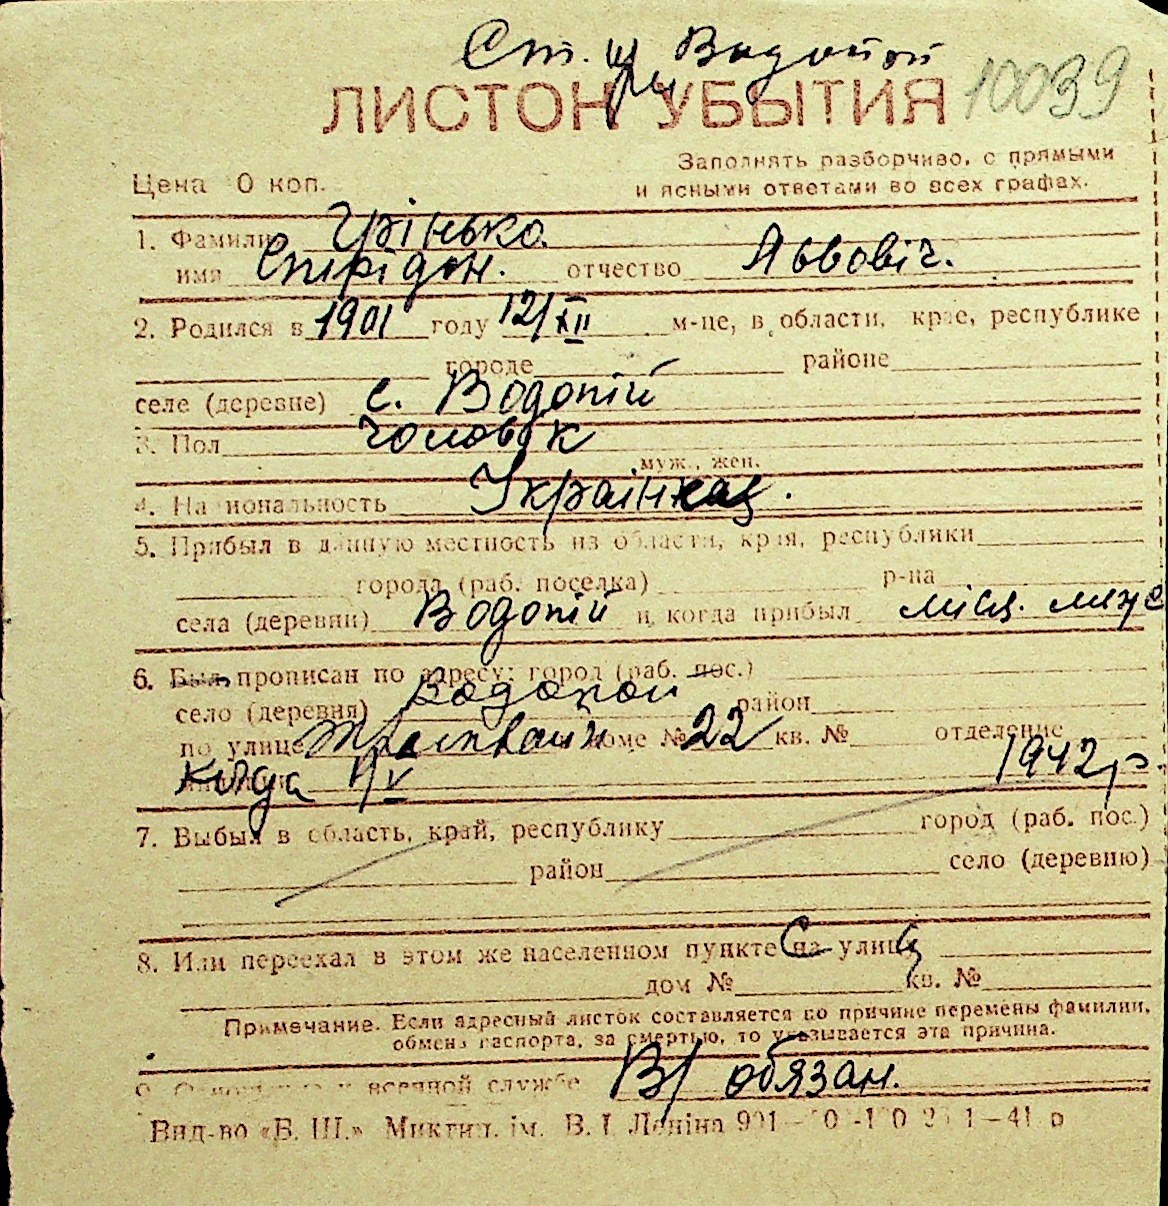 Ст. Водопой
ЛИСТОК УБЫТИЯ 10039
Заполнять разборчиво, с прямыми
Цена 0 коп. и ясными ответами во всех графах.
1. Фамилия Грінько
имя Спірідон. отчество Львовіч.
2. Родился в 1901 году 12/XII м-це, в области, крае, республике
городе районе
селе (деревне) с. Водопій
3. Пол чоловік
муж., жен.
4. Национальность Українец.
5. Прибыл в данную местность из области, края, республики
города (раб. поселка) р-на
села (деревни) Водопій и когда прибыл місц. жит
6. Был прописан по адресу: город (раб. пос.)
село (деревня) Водопой район
по улице доме № 22 кв. № отделение
когда 1942 г.
7. Выбыл в область, край, республику город (раб. пос.)
район село (деревню)
8. Или переехал в этом же населенном пункте на улицу
дом № кв. №
Примечание. Если адресный листок составляется по причине перемены фамилии,
обмена паспорта, за смертью, то указывается эта причина.
9. Отношение к военной службе В/обязан.
Вид-во «Б. Ш.» Микол. ім. В. І. Леніна